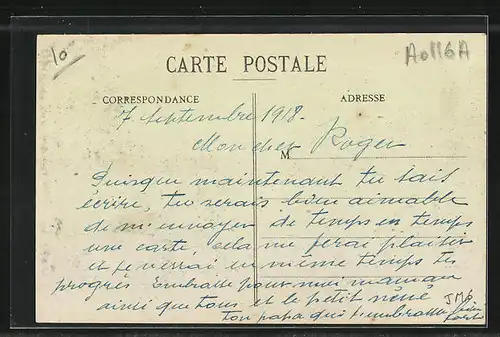 10
A0116A
CARTE POSTALE
CORRESPONDANCE
ADRESSE
7 septembre 1918.
Mon cher Roger
M
Puisque maintenant tu sait
écrire, tu serais bien aimable
de m'envoyer de temps en temps
une carte, cela me ferai plaisir
et je verrai en même temps tes
progrès Embrasse pour moi maman
ainsi que tous et le petit néné
JMb
ton papa qui t'embrasse bien
fort